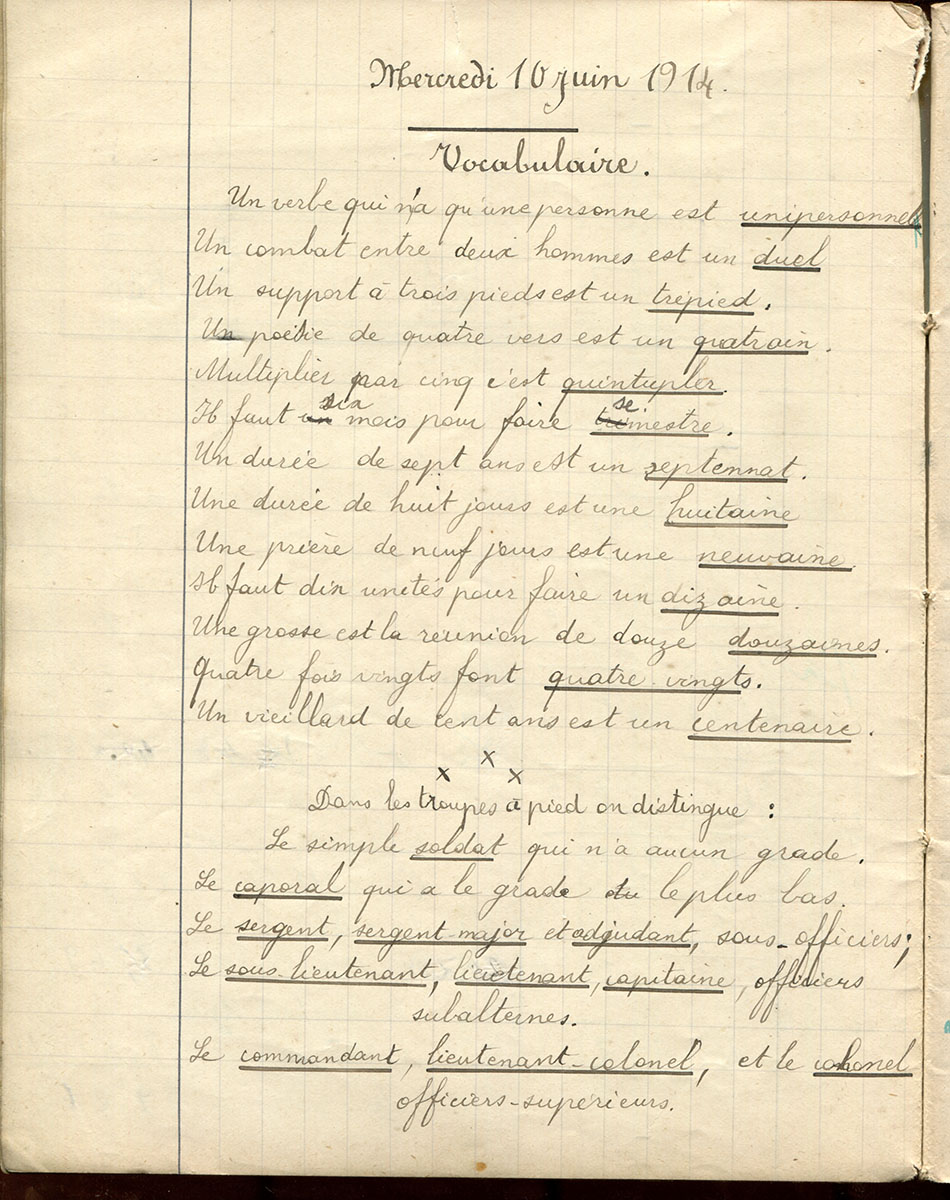 Mercredi 10 Juin 1914.
Vocabulaire.
Un verbe qui n'a qu'une personne est unipersonnel
Un combat entre deux hommes est un duel
Un support à trois pieds est un trépied.
Un poésie de quatre vers est un quatrain.
Multiplier par cinq c'est quintupler.
six se
Il faut un mois pour faire trimestre.
Un durée de sept ans est un septennat.
Une durée de huit jours est une huitaine
Une prière de neuf jours est une neuvaine.
Il faut dix unités pour faire un dizaine.
Une grosse est la réunion de douze douzaines.
Quatre fois vingts font quatre-vingts.
Un vieillard de cent ans est un centenaire.
x x x
Dans les troupes à pied on distingue :
Le simple soldat qui n'a aucun grade.
Le caporal qui a le grade du le plus bas.
Le sergent, sergent-major et adjudant, sous-officiers;
Le sous-lieutenant, lieutenant, capitaine, officiers
subalternes.
Le commandant, lieutenant-colonel, et le colonel
officiers-supérieurs.